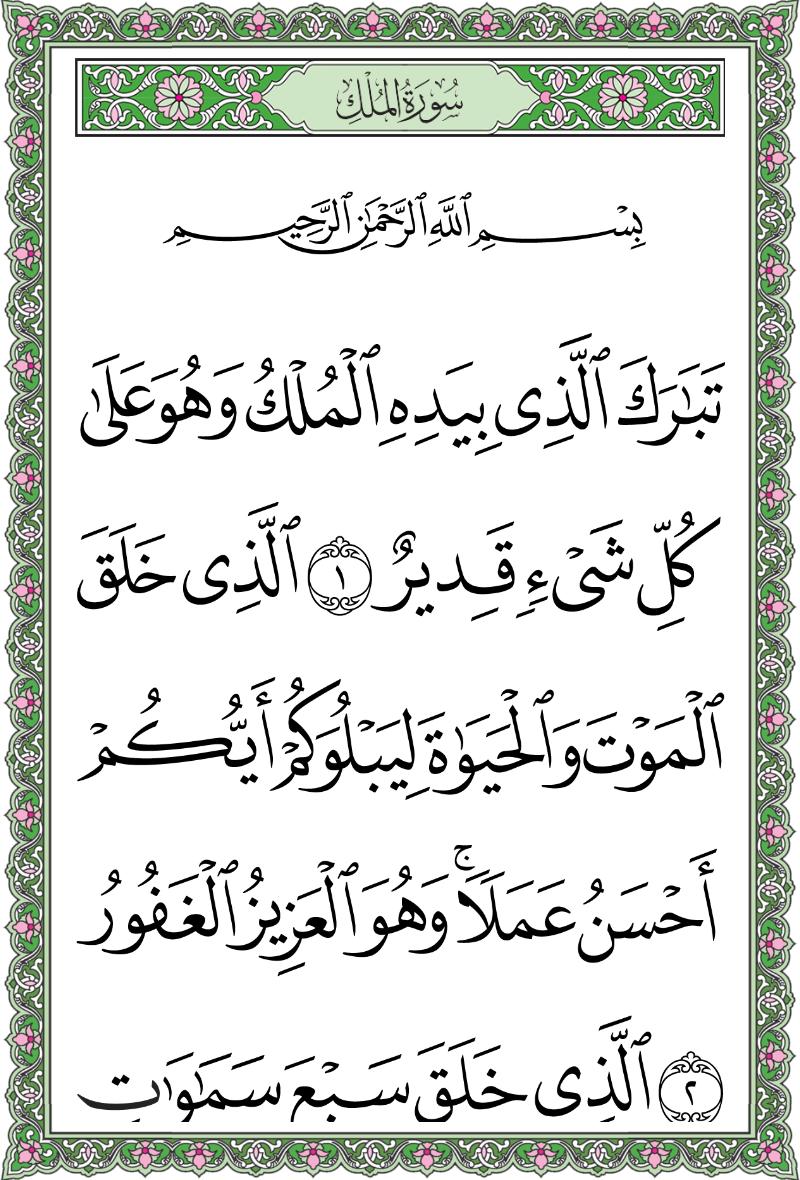 سُورَةُ المُلْكِ
بِسْمِ ٱللَّهِ ٱلرَّحْمَٰنِ ٱلرَّحِيمِ
تَبَٰرَكَ ٱلَّذِى بِيَدِهِ ٱلْمُلْكُ وَهُوَ عَلَىٰ
كُلِّ شَىْءٍ قَدِيرٌ ١ ٱلَّذِى خَلَقَ
ٱلْمَوْتَ وَٱلْحَيَوٰةَ لِيَبْلُوَكُمْ أَيُّكُمْ
أَحْسَنُ عَمَلًا ۚ وَهُوَ ٱلْعَزِيزُ ٱلْغَفُورُ
٢ ٱلَّذِى خَلَقَ سَبْعَ سَمَٰوَٰتٍ